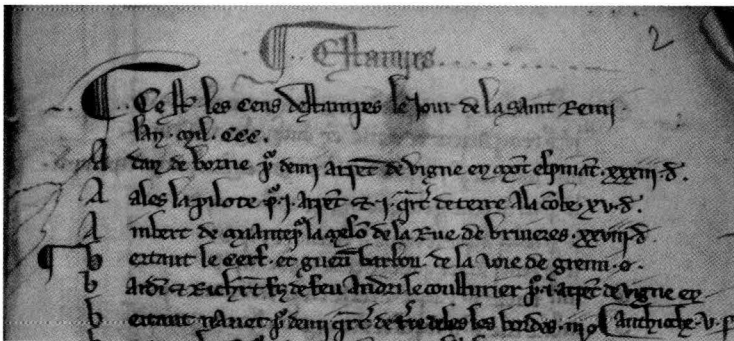 2
Estampes
Ce st les cens destampes le Jour de la saint Remi
lan mil ccc.
Adan de borne p demi arpēt de vigne en mōt espinat xxxiii d.
Aales la pilote p i arpēt & i qrt de terre a la cōbe xv d.
Ambert de la mesō de la Rue de bruieres xxviii d
bertaut le Cerf et barbou de la voie de
bardī & Richart de feu Andri le cousturier p i arpēt de vigne en
bertaut p demi qrt de tre deles les bordes iii o anthioche v s